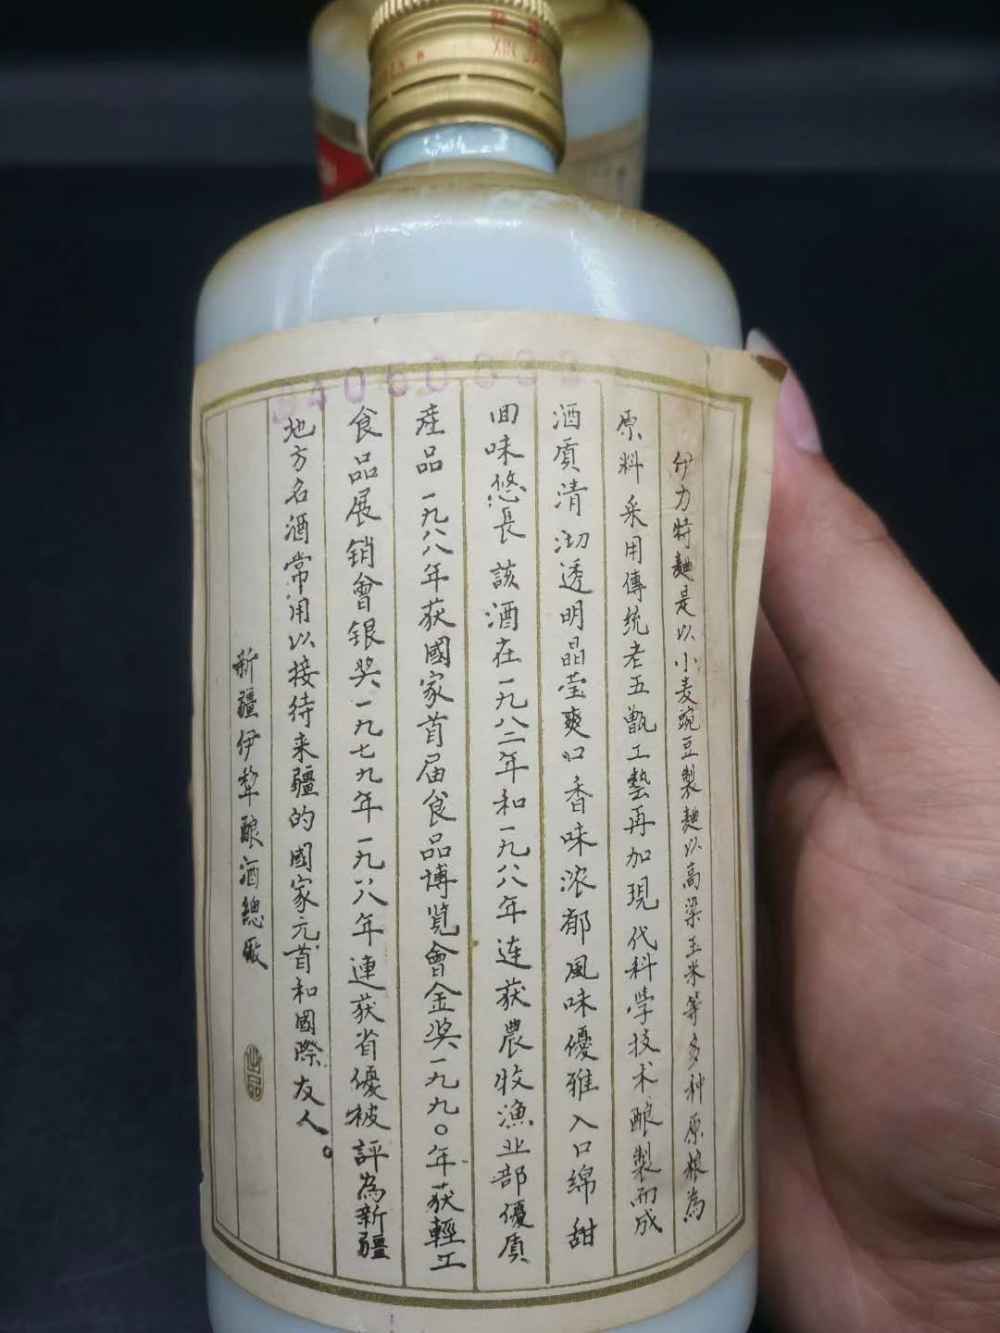 伊力特麯是以小麦豌豆製麯以高梁玉米等多种原粮為
原料采用傳统老五甑工藝再加現代科学技术酿製而成
酒质清沏透明晶莹爽口香味浓郁風味優雅入口綿甜
回味悠長該酒在一九八二年和一九八八年连获農牧漁业部優质
産品一九八八年获國家首届食品博览會金奖一九九〇年获輕工
食品展销會银奖一九七九年一九八八年連获省優被評為新疆
地方名酒常用以接待来疆的國家元首和國際友人。
新疆伊犂酿酒總厰